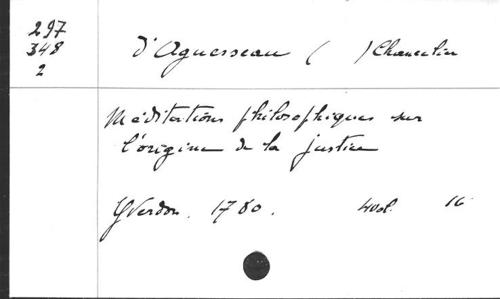 297
348
2
d'Aguesseau ( ) Chancelier
Méditations philosophiques sur
l'origine de la justice
Yverdon. 1780. 4 vol. 16